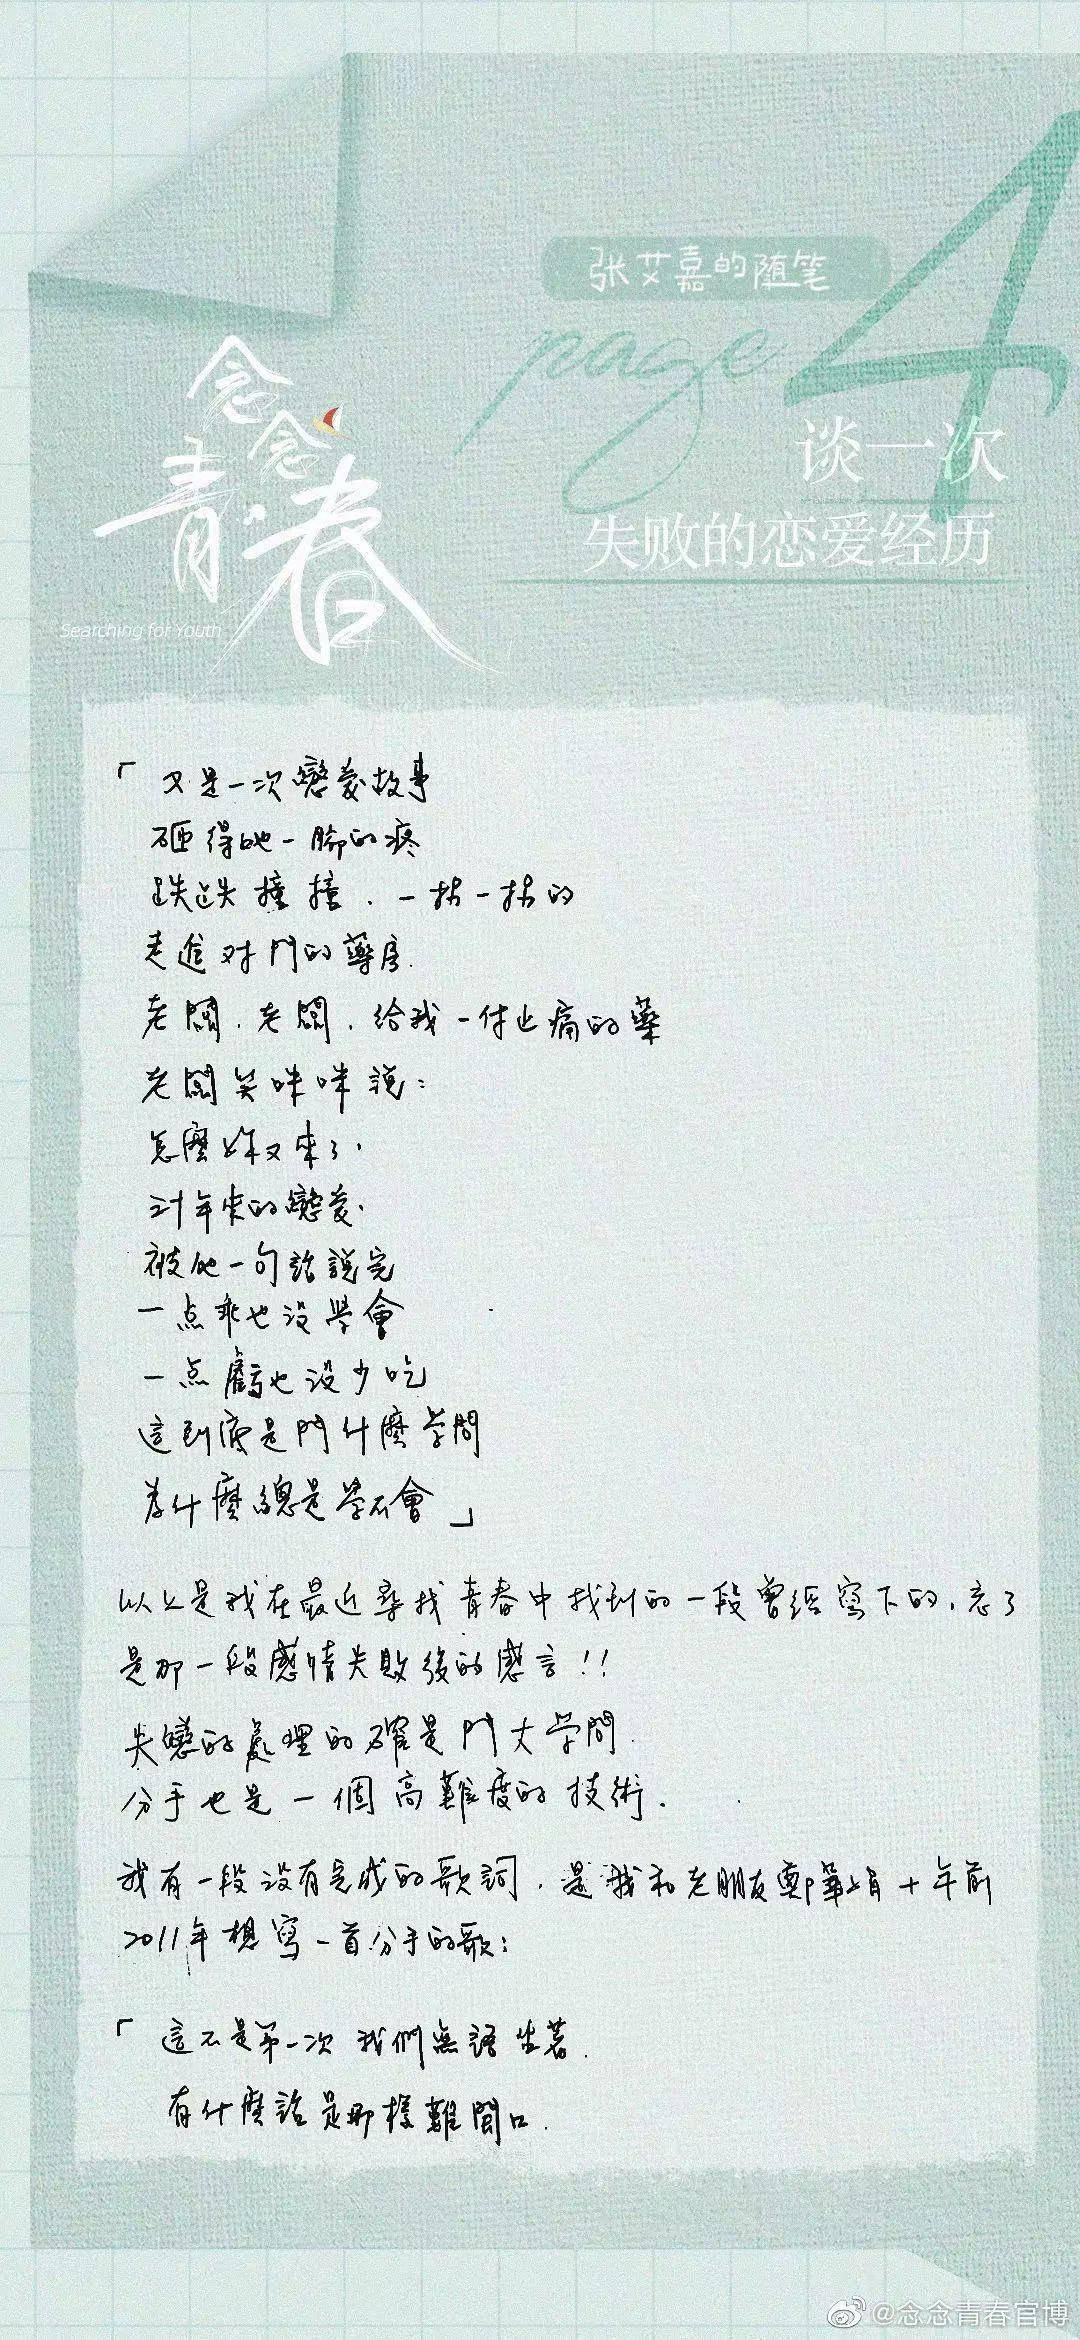 张艾嘉的随笔
page 4
念念
青春
Searching for Youth
谈一次
失败的恋爱经历
「又是一次戀愛故事
砸得她一腳的疼
跌跌撞撞．一拐一拐的
走進对門的藥房．
老闆．老闆．給我一付止痛的藥
老闆笑咪咪說：
怎麼妳又來了．
年來的戀愛．
被他一句話說完
一点乖也沒學會
一点虧也沒少吃
這到底是門什麼学問
為什麼總是学不會」
以上是我在最近尋找青春中找到的一段曾經寫下的，忘了
是那一段感情失敗後的感言！！
失戀的處理的確是門大学問．
分手也是一個高難度的技術．
我有一段沒有完成的歌詞，是我和老朋友鄭華娟十年前
2011年想寫一首分手的歌：
「這不是第一次我們無語坐著．
有什麼話是那樣難開口．
@念念青春官博